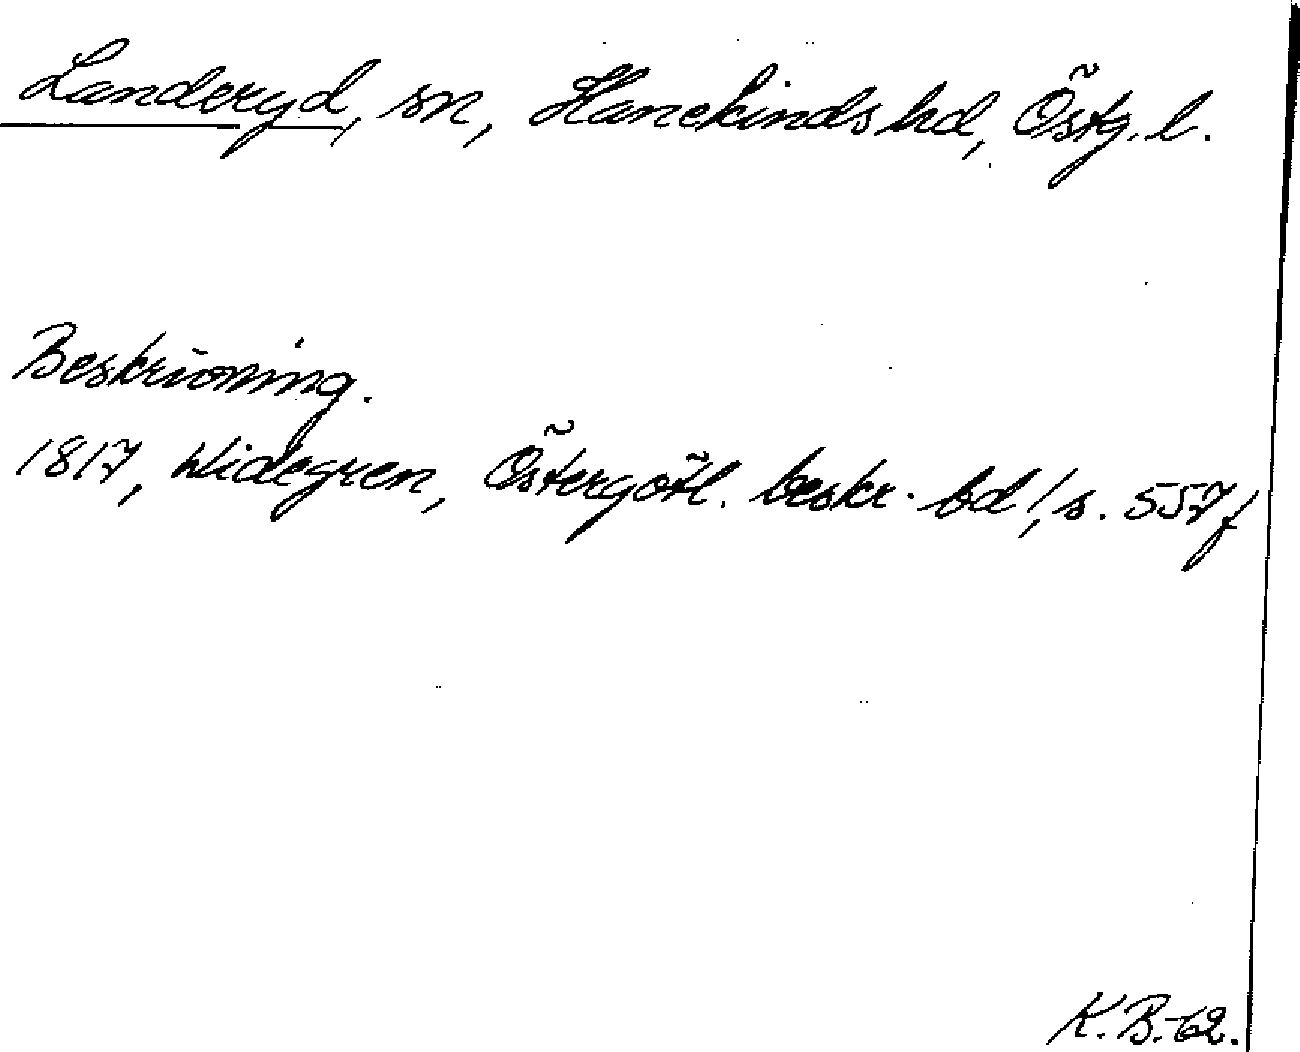 Landeryd, sn, Hanekinds hd, Östg. l.
Beskrivning.
1817, Widegren, Östergötl. beskr. bd 1, s. 557f
K.B.-62.